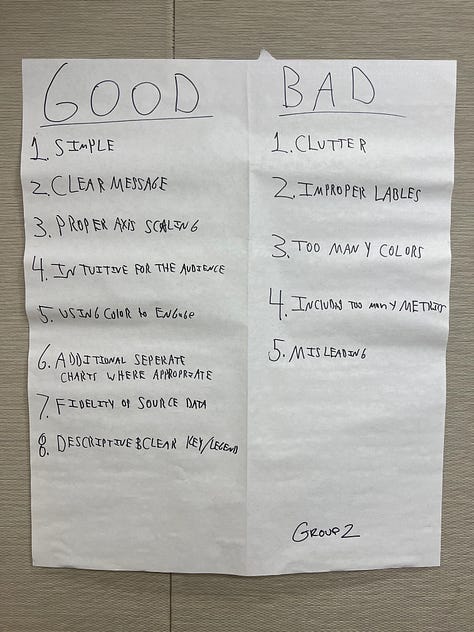 GOOD
1. SIMPLE
2. CLEAR MESSAGE
3. PROPER AXIS SCALING
4. INTUITIVE FOR THE AUDIENCE
5. USING COLOR to ENGAGE
6. ADDITIONAL SEPERATE
CHARTS WHERE APPROPRIATE
7. FIDELITY OF SOURCE DATA
8. DESCRIPTIVE & CLEAR KEY/LEGEND
BAD
1. CLUTTER
2. IMPROPER LABLES
3. TOO MANY COLORS
4. INCLUDES TOO MANY METRICS
5. MISLEADING
GROUP 2